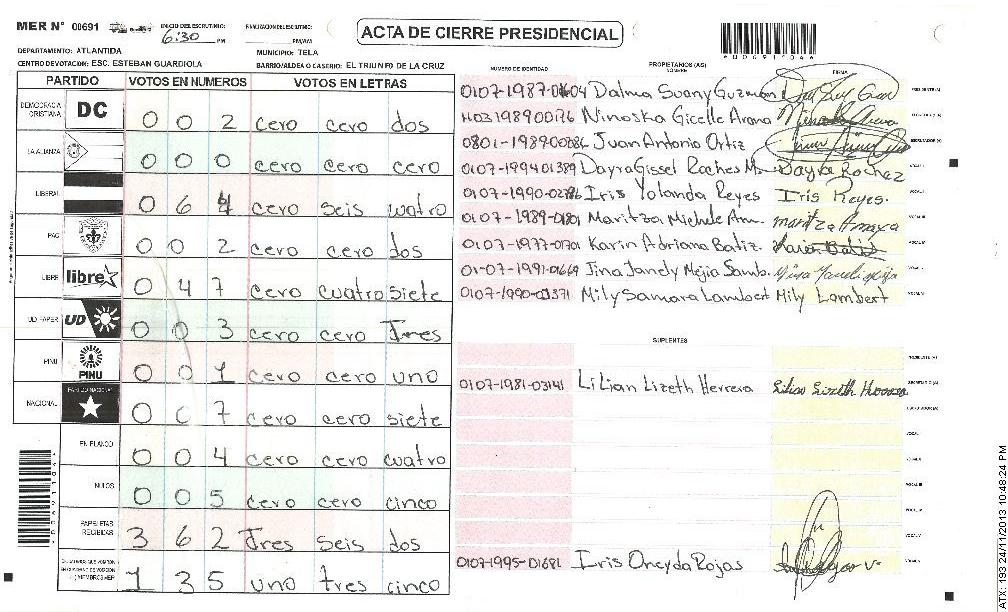 MER Nº 00691 INICIO DEL ESCRUTINIO: 6:30 PM FINALIZACION DEL ESCRUTINIO: PM/AM
ACTA DE CIERRE PRESIDENCIAL
DEPARTAMENTO: ATLANTIDA MUNICIPIO: TELA
CENTRO DE VOTACION: ESC. ESTEBAN GUARDIOLA BARRIO/ALDEA O CASERIO: EL TRIUNFO DE LA CRUZ
PARTIDO VOTOS EN NUMEROS VOTOS EN LETRAS
DEMOCRACIA CRISTIANA DC 0 0 2 cero cero dos
LA ALIANZA 0 0 0 cero cero cero
LIBERAL 0 6 4 cero seis cuatro
PAC 0 0 2 cero cero dos
LIBRE libre 0 4 7 cero cuatro siete
UD FAPER UD 0 0 3 cero cero Tres
PINU PINU 0 0 1 cero cero uno
NACIONAL PARTIDO NACIONAL 0 0 7 cero cero siete
EN BLANCO 0 0 4 cero cero cuatro
NULOS 0 0 5 cero cero cinco
PAPELETAS RECIBIDAS 3 6 2 Tres seis dos
1 3 5 uno tres cinco
NUMERO DE IDENTIDAD PROPIETARIOS (AS) NOMBRE FIRMA
Dalma Suany Guzmán PRESIDENTE (A)
Ninoska Gicelle Arana
0801-1989 Juan Antonio Ortiz ESCRUTADOR (A)
0107-1994-01389 Dayra Gissel Roches Dayra Rochez
0107-1990 Iris Yolanda Reyes Iris Reyes.
0107-1989 Maritza Michele Maritza Amaya
0107-1977-01701 Karin Adriana Batiz.
01-07-1991-01669 Jina Janely Mejia
0107-1990-03371 Mily Samara Lambert Mily Lambert
SUPLENTES
PRESIDENTE (A)
0107-1981-03141 Lilian Lizeth Herrera Lilian Lizeth Herrera SECRETARIO (A)
ESCRUTADOR (A)
0107-1995-01681 Iris Oneyda Rojas
ATX: 193 24/11/2013 10:48:24 PM